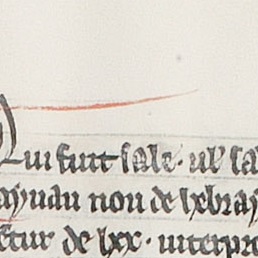 Qui fuit sale· ul' sa
aynan non de hebray
etur de lxx· uiterpre